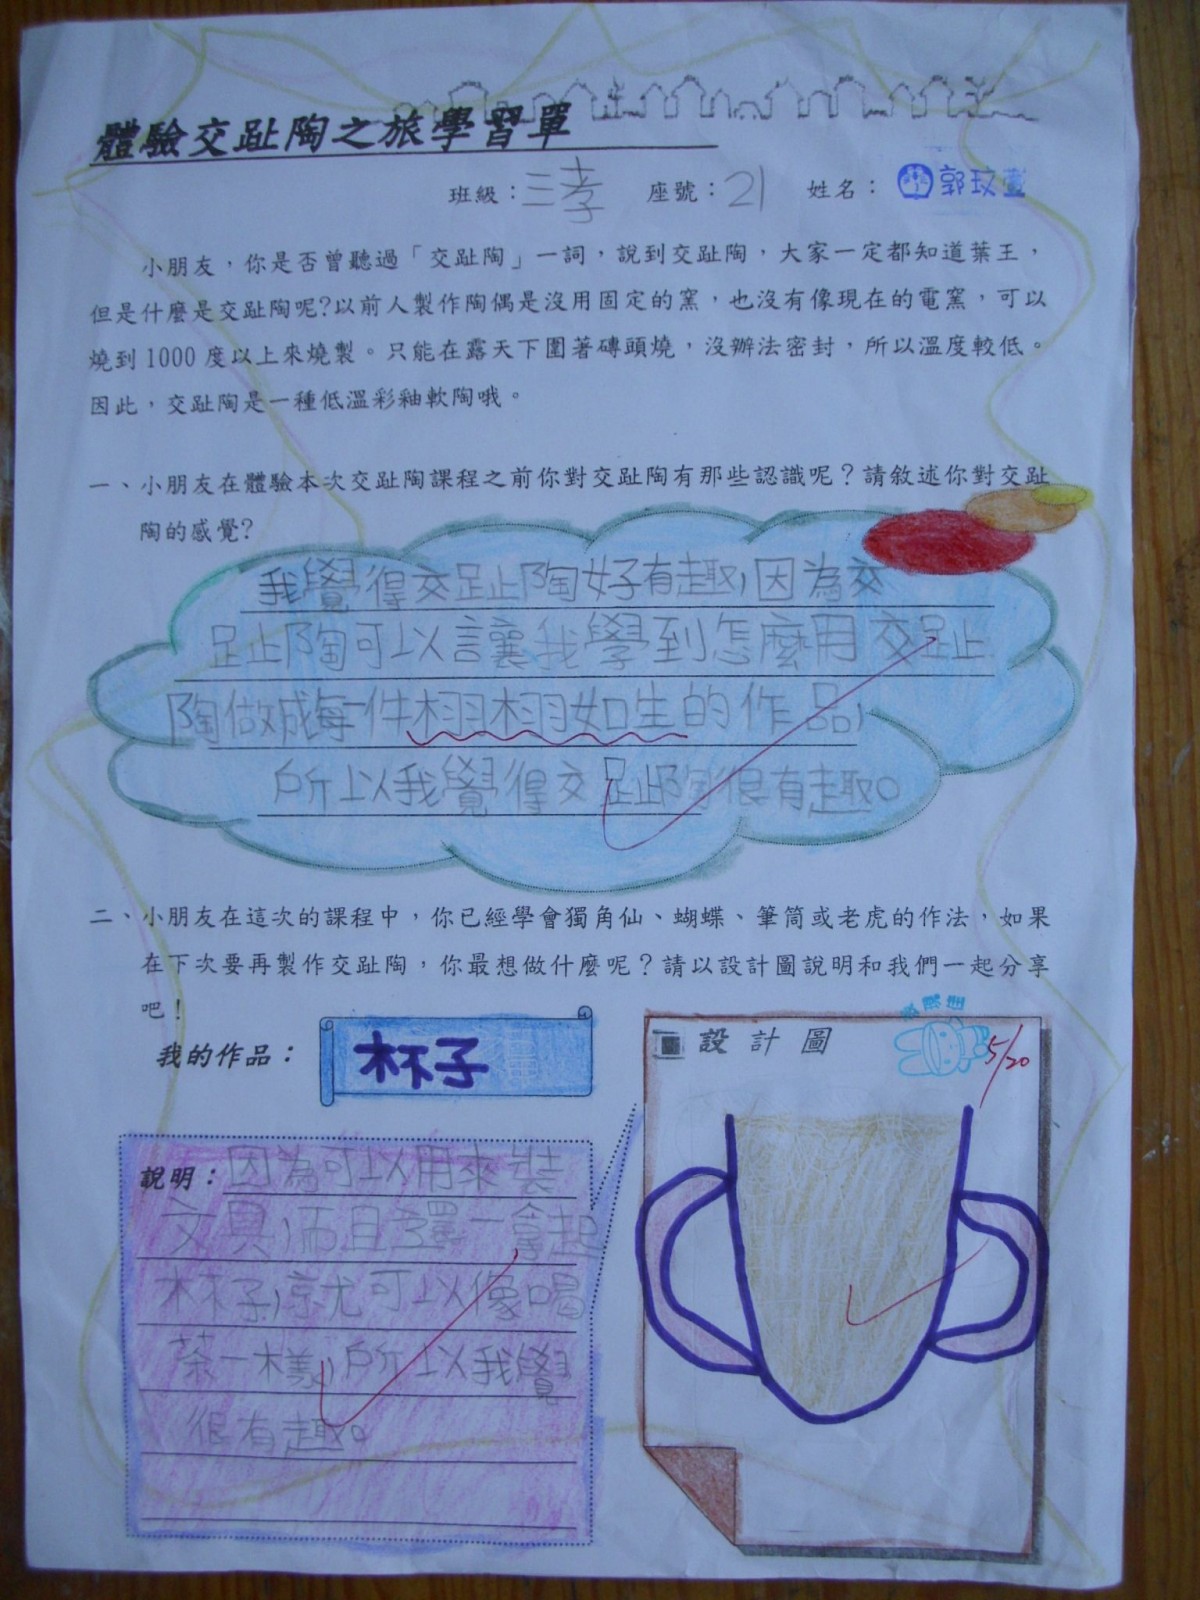 體驗交趾陶之旅學習單
班級：三孝 座號：21 姓名：郭玟萱
小朋友，你是否曾聽過「交趾陶」一詞，說到交趾陶，大家一定都知道葉王，
但是什麼是交趾陶呢?以前人製作陶偶是沒用固定的窯，也沒有像現在的電窯，可以
燒到1000度以上來燒製。只能在露天下圍著磚頭燒，沒辦法密封，所以溫度較低。
因此，交趾陶是一種低溫彩釉軟陶哦。
一、小朋友在體驗本次交趾陶課程之前你對交趾陶有那些認識呢？請敘述你對交趾
陶的感覺?
我覺得交趾陶好有趣，因為交
趾陶可以讓我學到怎麼用交趾
陶做成每件栩栩如生的作品，
所以我覺得交趾陶很有趣。
二、小朋友在這次的課程中，你已經學會獨角仙、蝴蝶、筆筒或老虎的作法，如果
在下次要再製作交趾陶，你最想做什麼呢？請以設計圖說明和我們一起分享
吧！
我的作品：杯子
設計圖
5/20
說明：因為可以用來裝
文具，而且還一拿起
杯子，就可以像喝
茶一樣，所以我覺
很有趣。